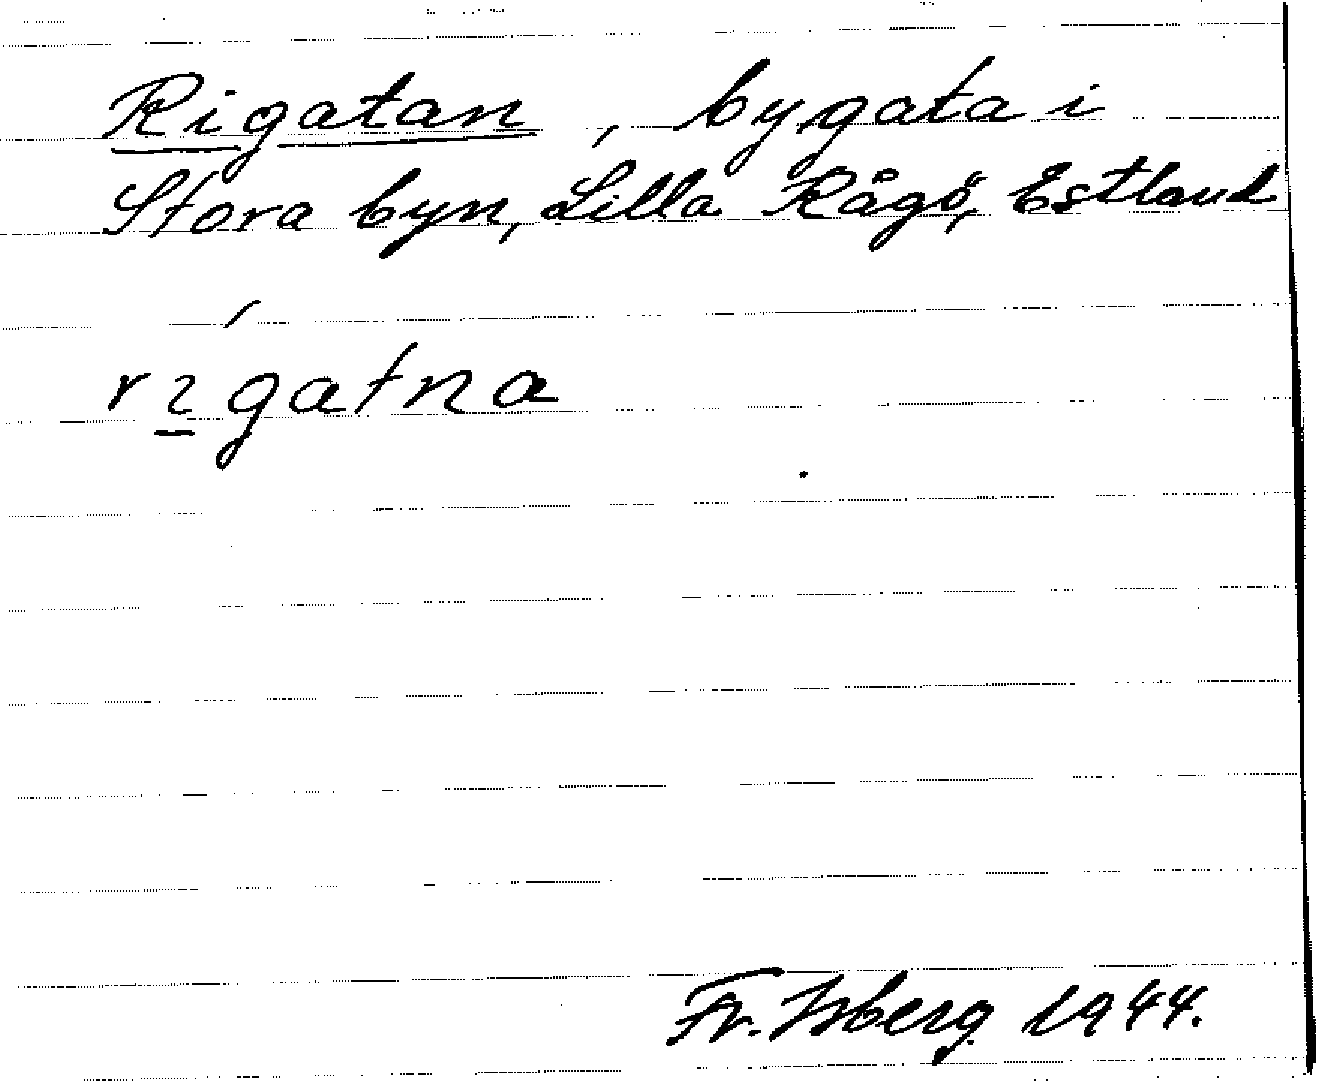 Rigatan, bygata i
Stora byn, Lilla Rågö, Estland
rıgatna
Fr. Isberg. 1944.